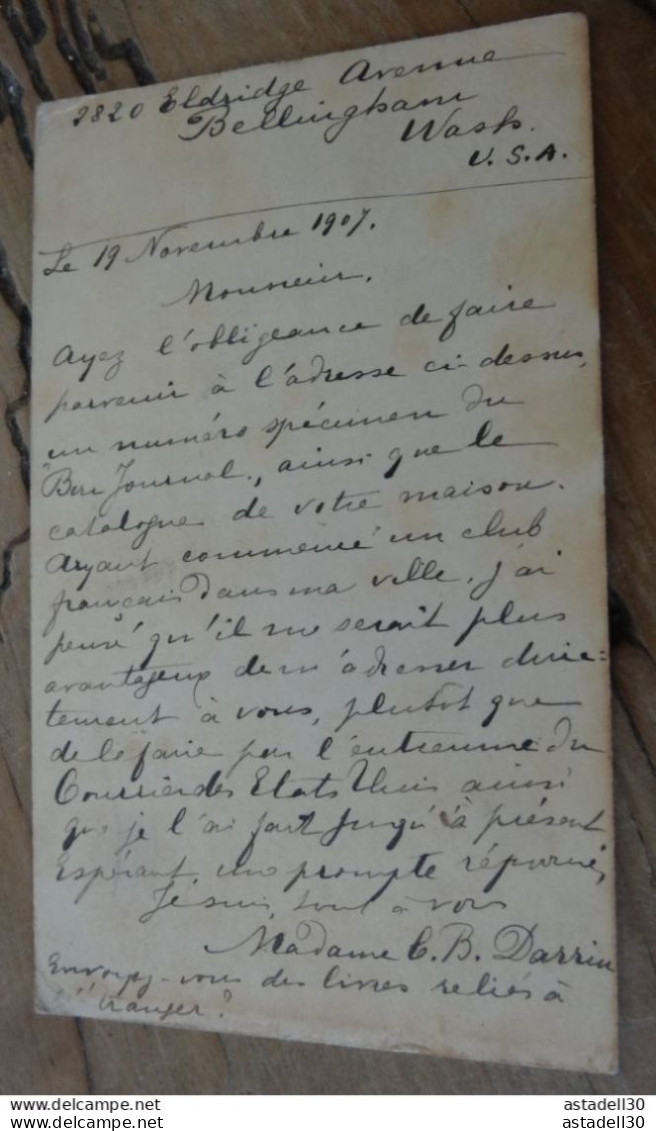 2820 Eldridge Avenue
Bellingham
Wash.
U.S.A.
Le 19 Novembre 1907.
Monsieur,
Ayez l'obligeance de faire
parvenir à l'adresse ci-dessus,
un numéro spécimen du
Bon Journal, ainsi que le
catalogue de votre maison.
Ayant commencé un club
français dans ma ville, j'ai
pensé qu'il me serait plus
avantageux de m'adresser direc-
tement à vous, plutôt que
de le faire par l'entremise du
Courrier des Etats Unis ainsi
que je l'ai fait jusqu'à présent
Espérant une prompte réponse,
Je suis, tout à vous
Madame C. B. Darrin
Envoyez-vous des livres reliés à
l'étranger?
astadell30
astadell30
www.delcampe.net
www.delcampe.net